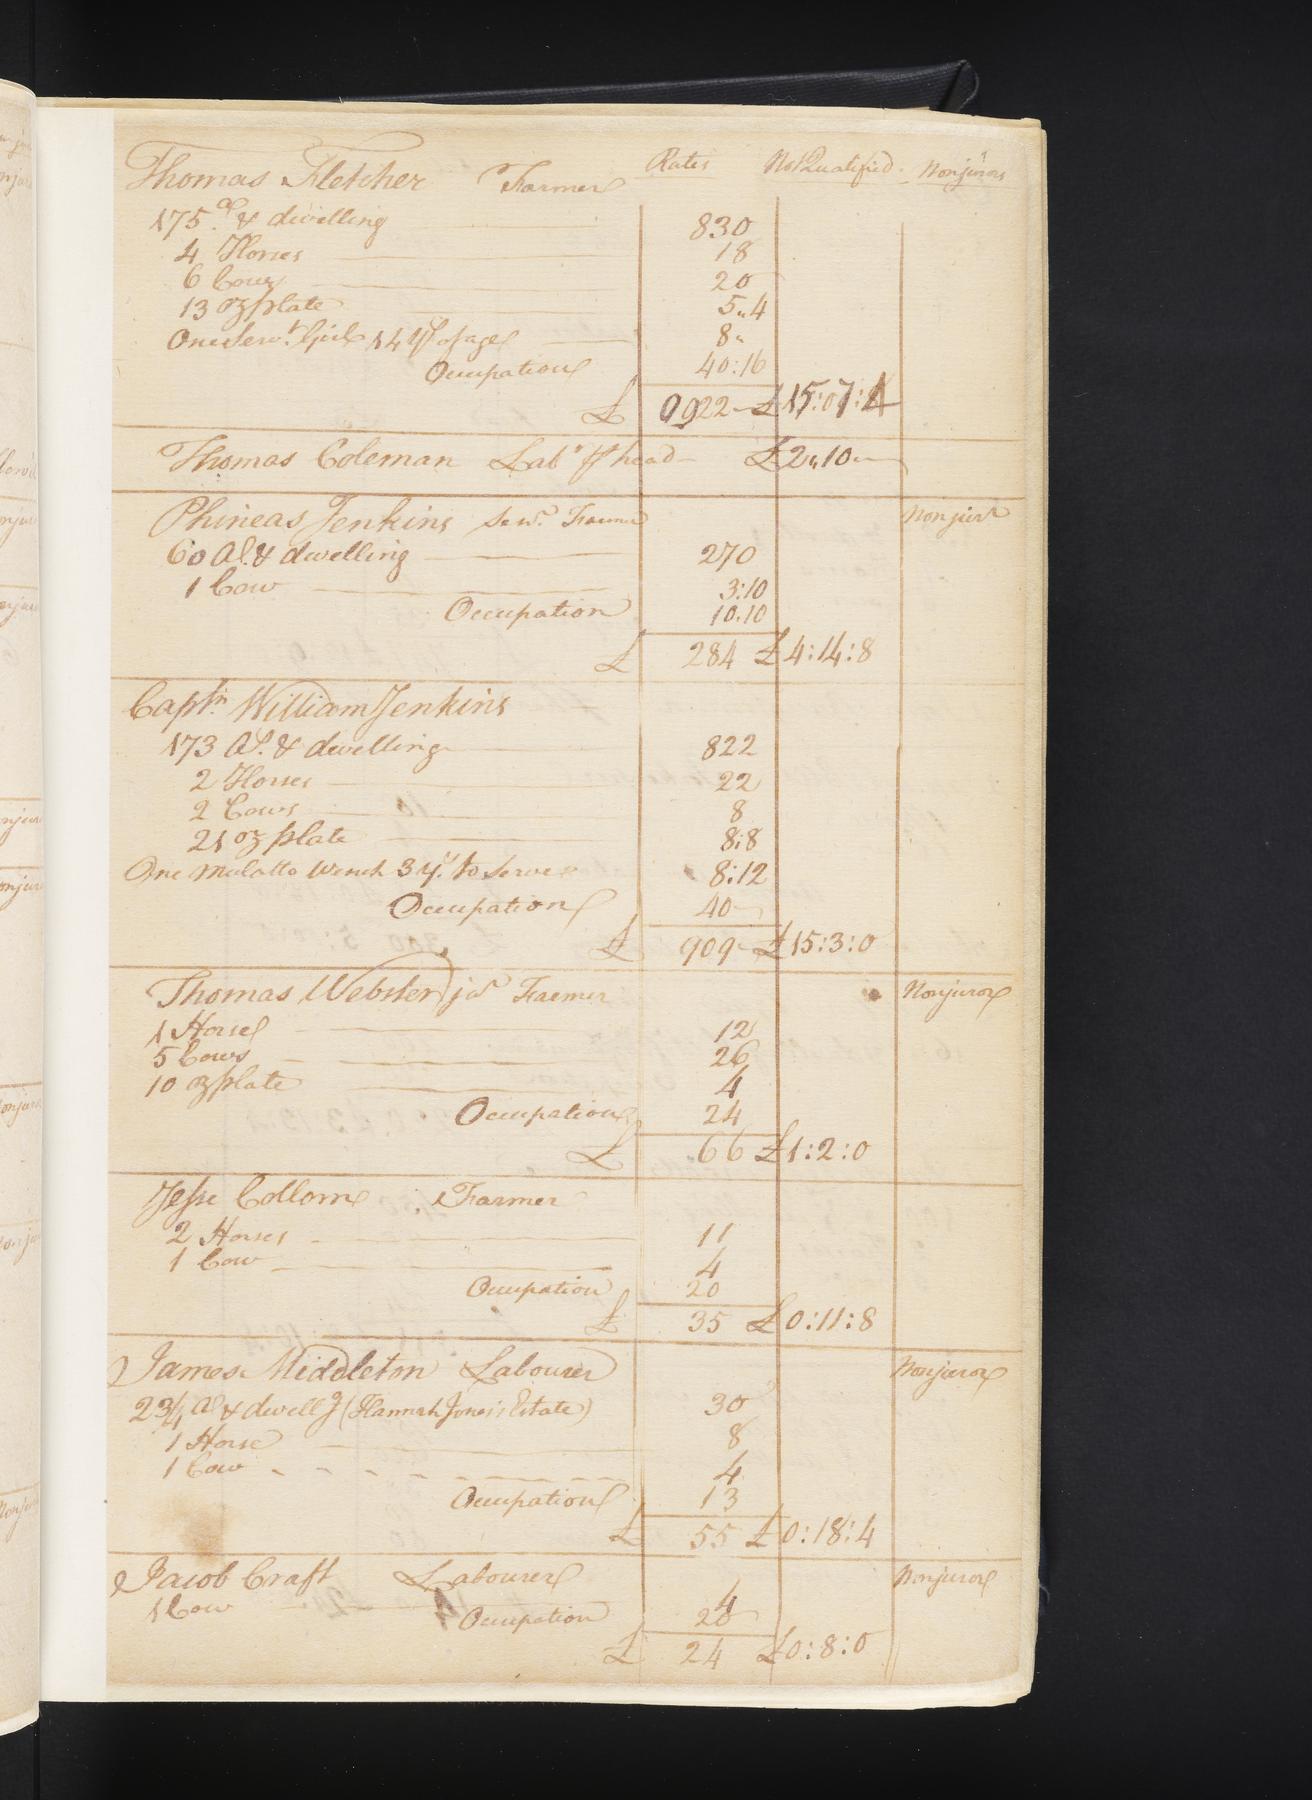 Rates Not Qualified. Nonjurors
Thomas Fletcher Farmer
175 as. & dwelling 830
4 Horses 18
6 Cows 20
13 oz plate 5,,4
One Servt. Girl 14 yrs of age 8,,
Occupation 40:16
£ 0922 £15:07:4
Thomas Coleman Labr. pr head £2,,10
Phineas Jenkins Farmer Nonjurr
60 As. & dwelling 270
1 Cow 3:10
Occupation 10.10
£ 284 £4:14:8
Captn. William Jenkins
173 As. & dwelling 822
2 Horses 22
2 Cows 8
21 oz plate 8:8
One Mulatto Wench 3 yrs. to serve 8:12
Occupation 40
£ 909 £15:3:0
Thomas Webster jr Farmer Nonjuror
1 Horse 12
5 Cows 26
10 oz plate 4
Occupation 24
£ 66 £1:2:0
Jesse Collom Farmer
2 Horses 11
1 Cow 4
Occupation 20
£ 35 £0:11:8
James Middleton Labourer Nonjuror
2 3/4 As & dwellg (Hannah Jones's Estate) 30
1 Horse 8
1 Cow 4
Occupation 13
£ 55 £0:18:4
Jacob Craft Labourer Nonjuror
1 Cow 4
Occupation 20
£ 24 £0:8:0